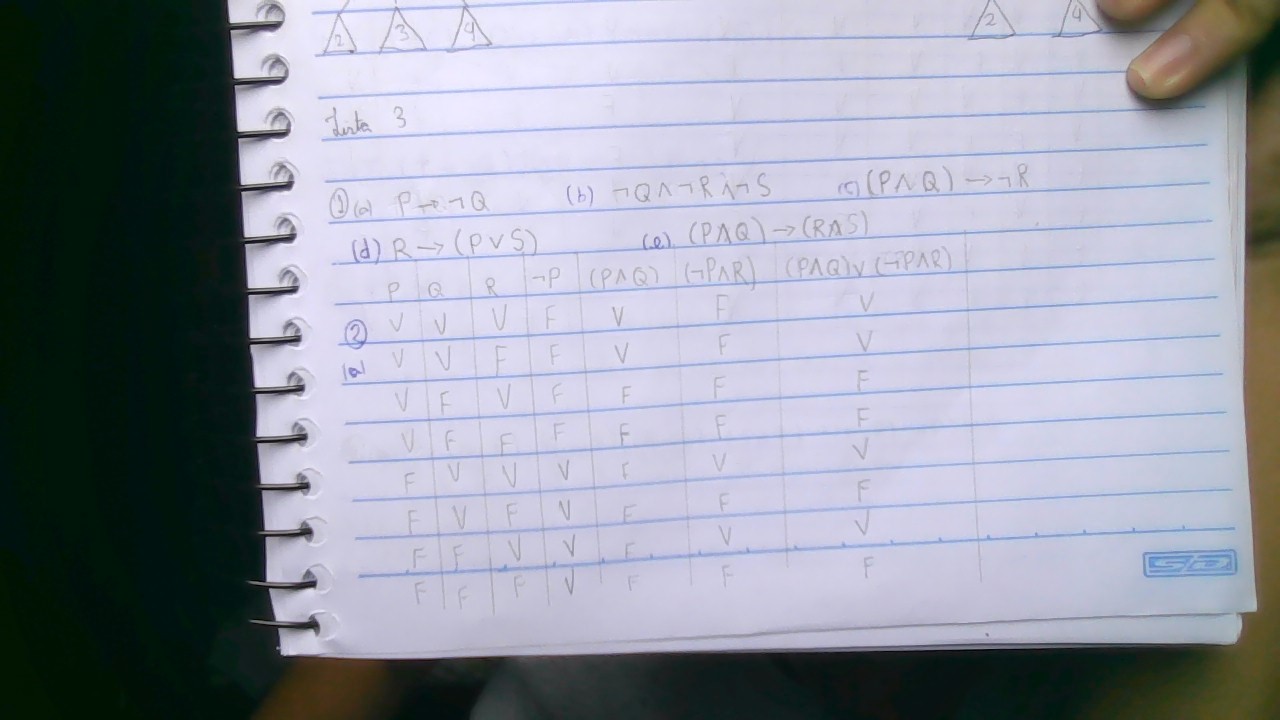 2 3 4 2 4
Lista 3
① (a) P → ¬Q (b) ¬Q ∧ ¬R ∧ ¬S (c) (P ∧ Q) → ¬R
(d) R → (P ∨ S) (e) (P∧Q) → (R∧S)
P Q R ¬P (P∧Q) (¬P∧R) (P∧Q) ∨ (¬P∧R)
② V V V F V F V
(a) V V F F V F V
V F V F F F F
V F F F F F F
F V V V F V V
F V F V F F F
F F V V F V V
F F F V F F F
SD